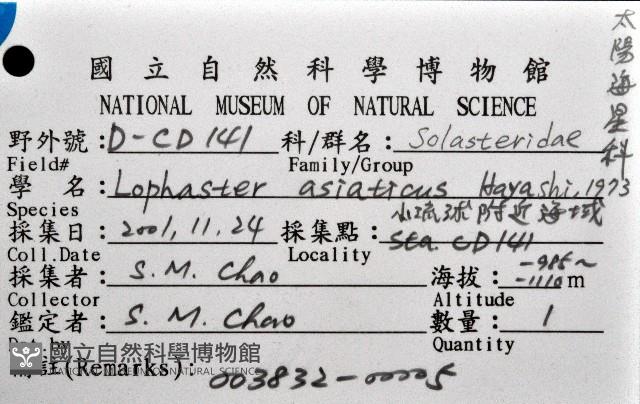 太陽海星科
國立自然科學博物館
NATIONAL MUSEUM OF NATURAL SCIENCE
野外號：D-CD141 科/群名：Solasteridae
Field# Family/Group
學 名：Lophaster asiaticus Hayashi, 1973
Species
小琉球附近海域
採集日：2001, 11, 24 採集點：Sta. CD141
Coll.Date Locality
採集者：S. M. Chao 海拔：-985~-1110 m
Collector Altitude
鑑定者：S. M. Chao 數量：1
Quantity
國立自然科學博物館
NATIONAL MUSEUM OF NATURAL SCIENCE
附註(Remarks)：003832-00005